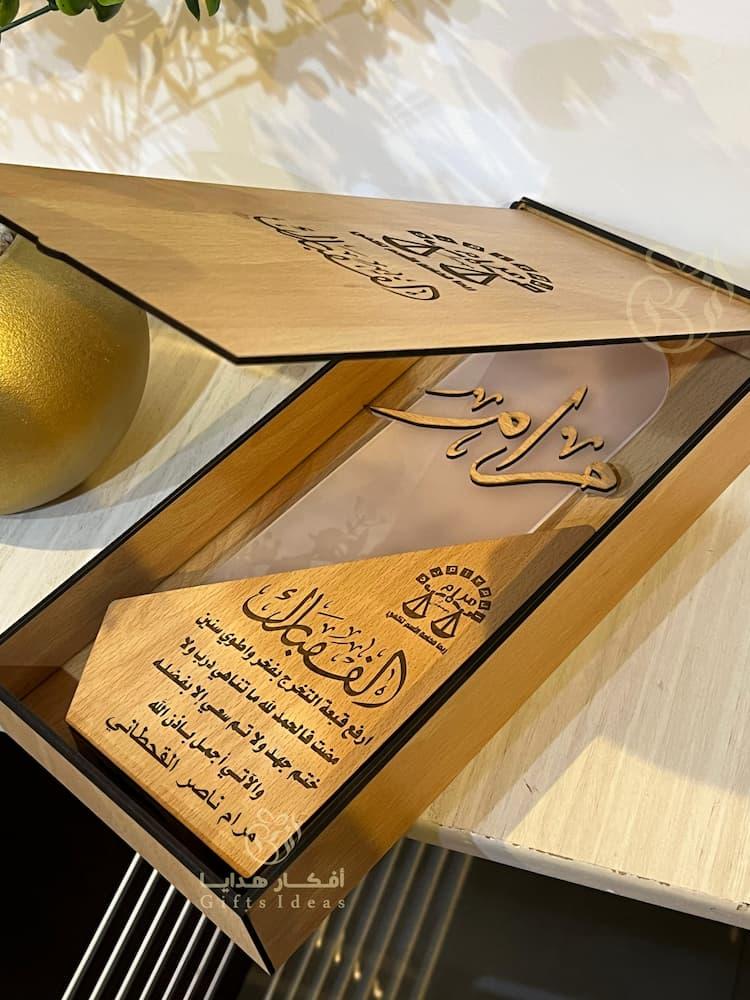 ألف مبارك
مرام
مرام
ألف مبارك
ارفع قبعة التخرج بفخر واطوي سنين
مضت فالحمد لله ما تناهى درب ولا
ختم جهد ولا تم سعي إلا بفضله
والآتي أجمل بإذن الله
مرام ناصر القحطاني
أفكار هدايا
Gifts Ideas